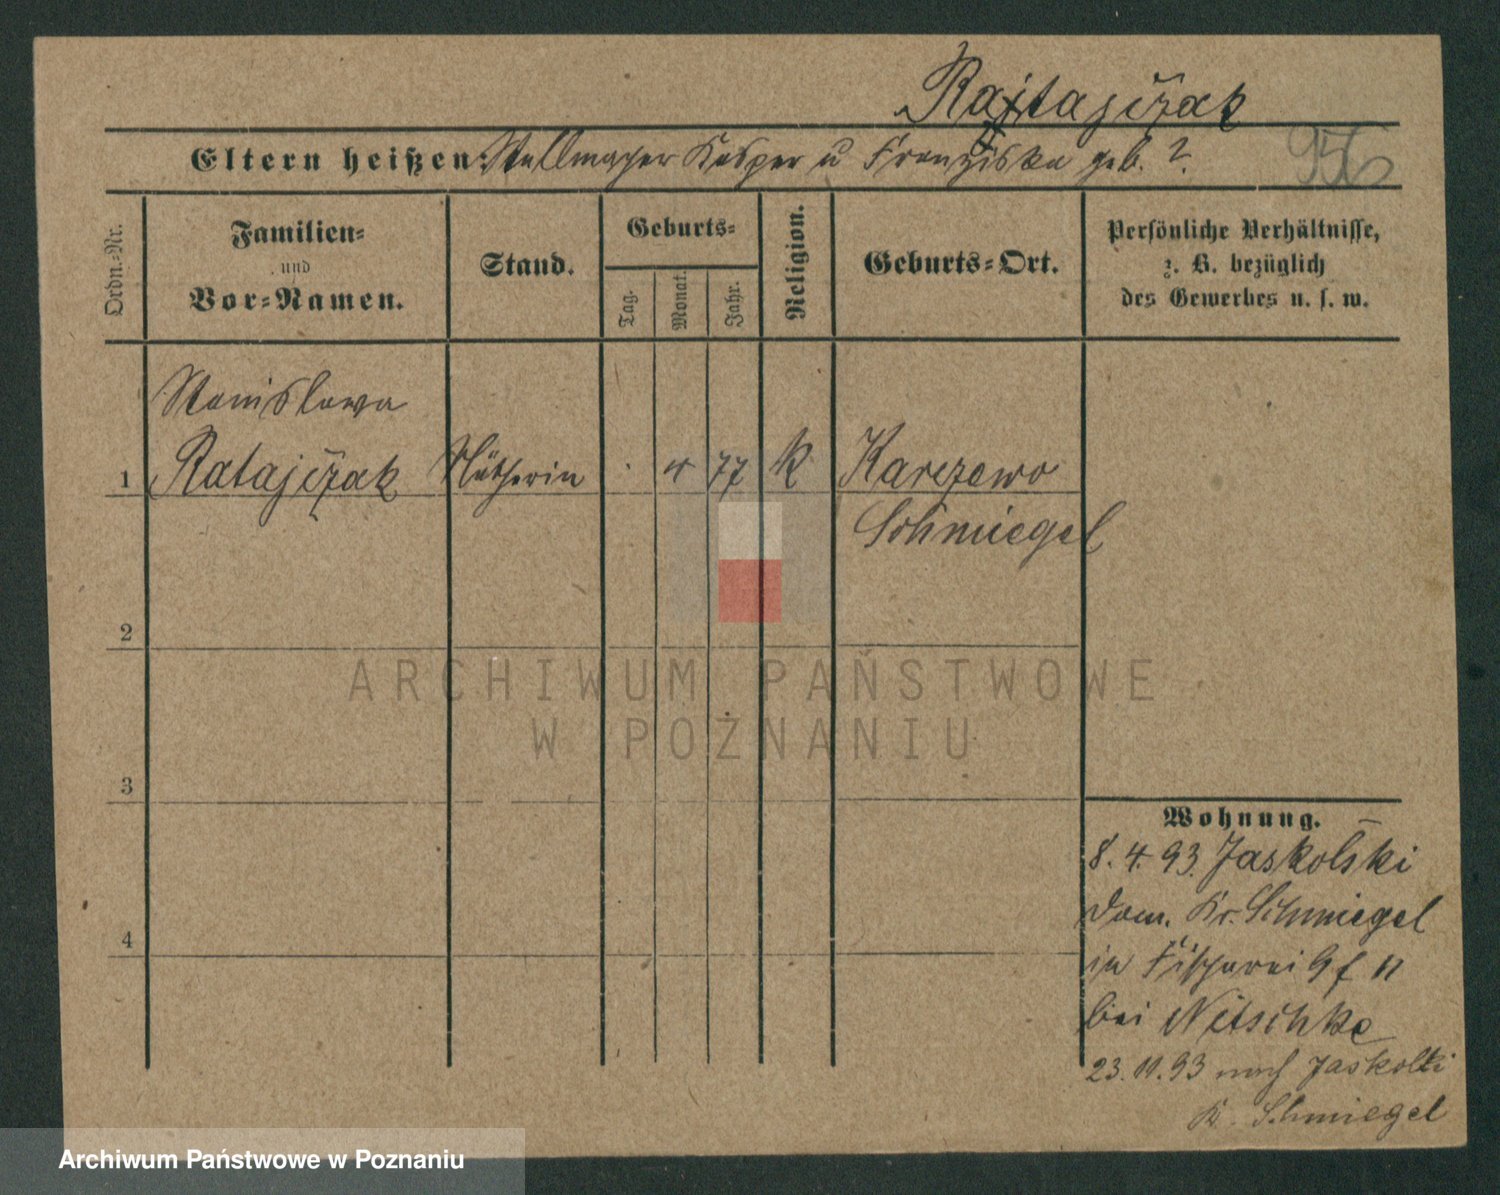 Ratajczak
Eltern heißen: Stellmacher Kasper u Franziska geb. ?.
956
Ordn.-Nr.
Familien-
und
Vor-Namen.
Stand.
Geburts-
Tag.
Monat.
Jahr.
Religion.
Geburts-Ort.
Persönliche Verhältnisse,
z. B. bezüglich
des Gewerbes u. s. w.
Stanislawa
1 Ratajczak Nätherin 4 77 k Karczewo
Schmiegel
2
3
4
Wohnung.
8. 4. 93. Jaskolski
Dom. Kr. Schmiegel
in Fischerei 9 f II
bei Nitschke
23. 11. 93 nach Jaskolki
K. Schmiegel
ARCHIWUM PAŃSTWOWE
W POZNANIU
Archiwum Państwowe w Poznaniu